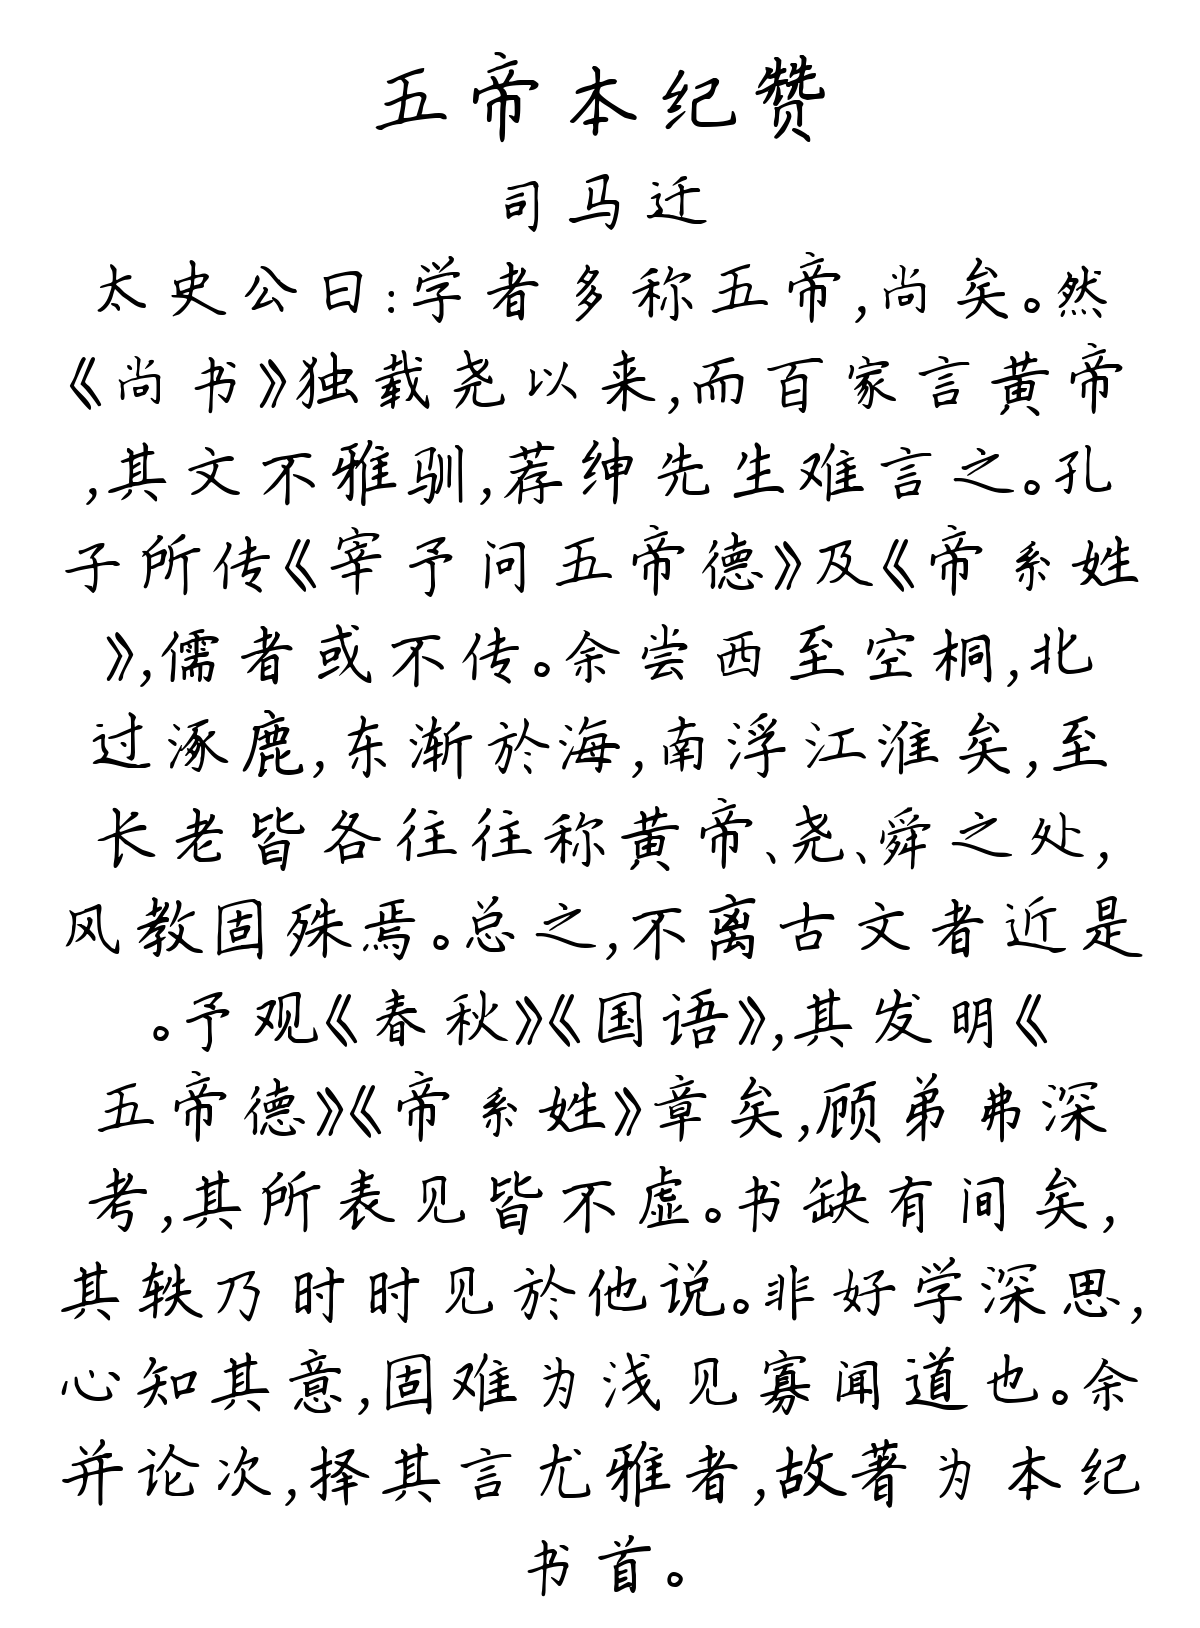 五帝本纪赞
司马迁
太史公曰:学者多称五帝,尚矣。然
《尚书》独载尧以来,而百家言黄帝
,其文不雅驯,荐绅先生难言之。孔
子所传《宰予问五帝德》及《帝系姓
》,儒者或不传。余尝西至空桐,北
过涿鹿,东渐於海,南浮江淮矣,至
长老皆各往往称黄帝、尧、舜之处,
风教固殊焉。总之,不离古文者近是
。予观《春秋》《国语》,其发明《
五帝德》《帝系姓》章矣,顾弟弗深
考,其所表见皆不虚。书缺有间矣,
其轶乃时时见於他说。非好学深思,
心知其意,固难为浅见寡闻道也。余
并论次,择其言尤雅者,故著为本纪
书首。